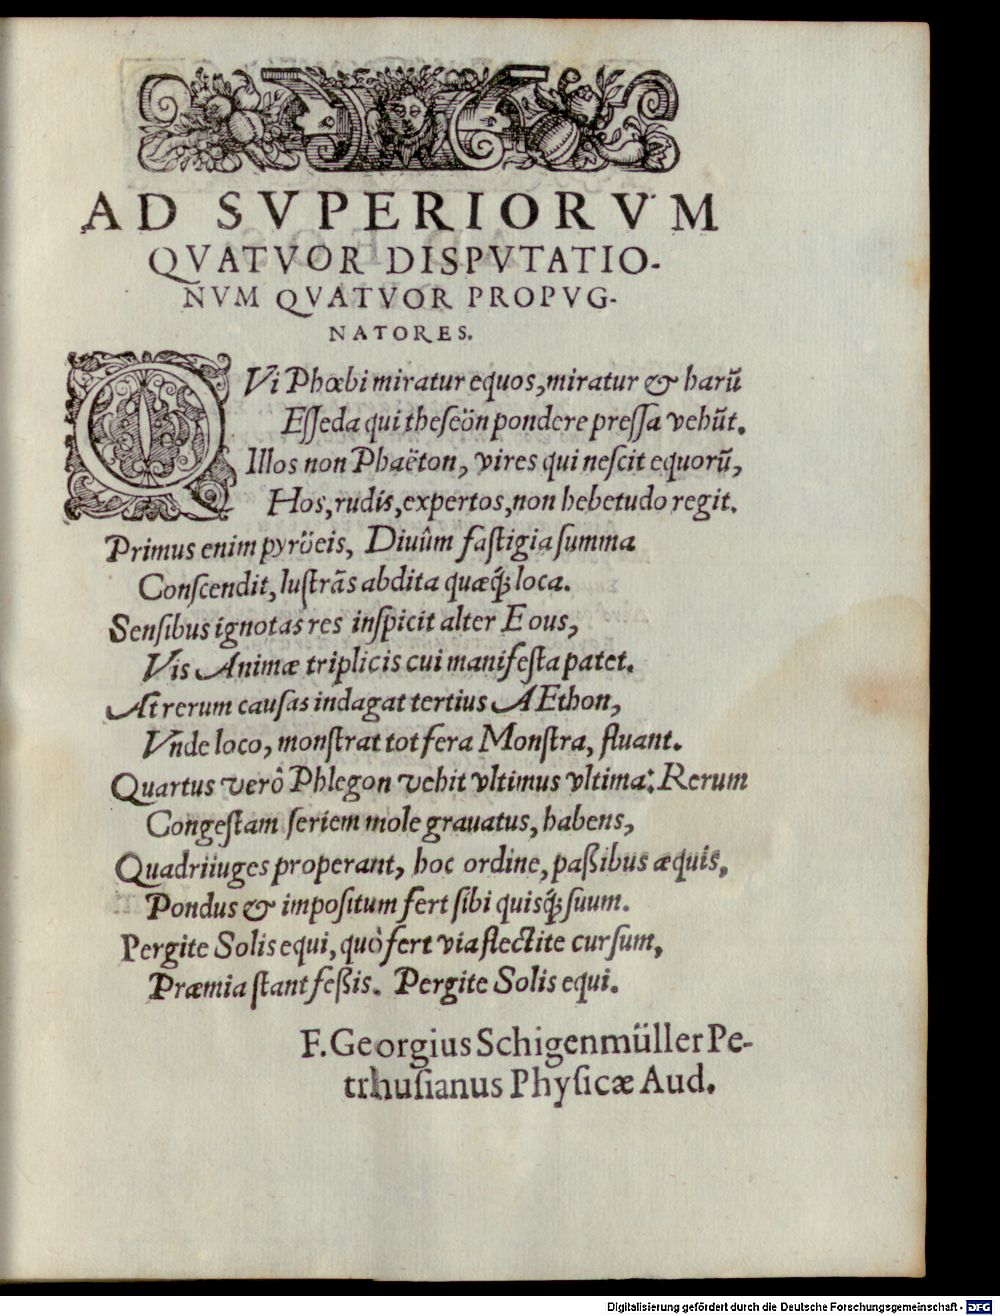 AD SVPERIORVM
QVATVOR DISPVTATIO-
NVM QVATVOR PROPVG-
NATORES.
QVi Phœbi miratur equos, miratur & harũ
Esseda qui theseôn pondere pressa vehũt.
Illos non Phaëton, vires qui nescit equorũ,
Hos, rudis, expertos, non hebetudo regit.
Primus enim pyröeis, Diuûm fastigia summa
Conscendit, lustrãs abdita quæq́; loca.
Sensibus ignotas res inspicit alter Eous,
Vis Animæ triplicis cui manifesta patet.
At rerum causas indagat tertius AEthon,
Vnde loco, monstrat tot fera Monstra, fluant.
Quartus verò Phlegon vehit vltimus vltima: Rerum
Congestam seriem mole grauatus, habens,
Quadriiuges properant, hoc ordine, paßibus æquis,
Pondus & impositum fert sibi quisq́; suum.
Pergite Solis equi, quò fert via flectite cursum,
Præmia stant feßis. Pergite Solis equi.
F. Georgius Schigenmüller Pe-
trhusianus Physicæ Aud.
Digitalisierung gefördert durch die Deutsche Forschungsgemeinschaft - DFG